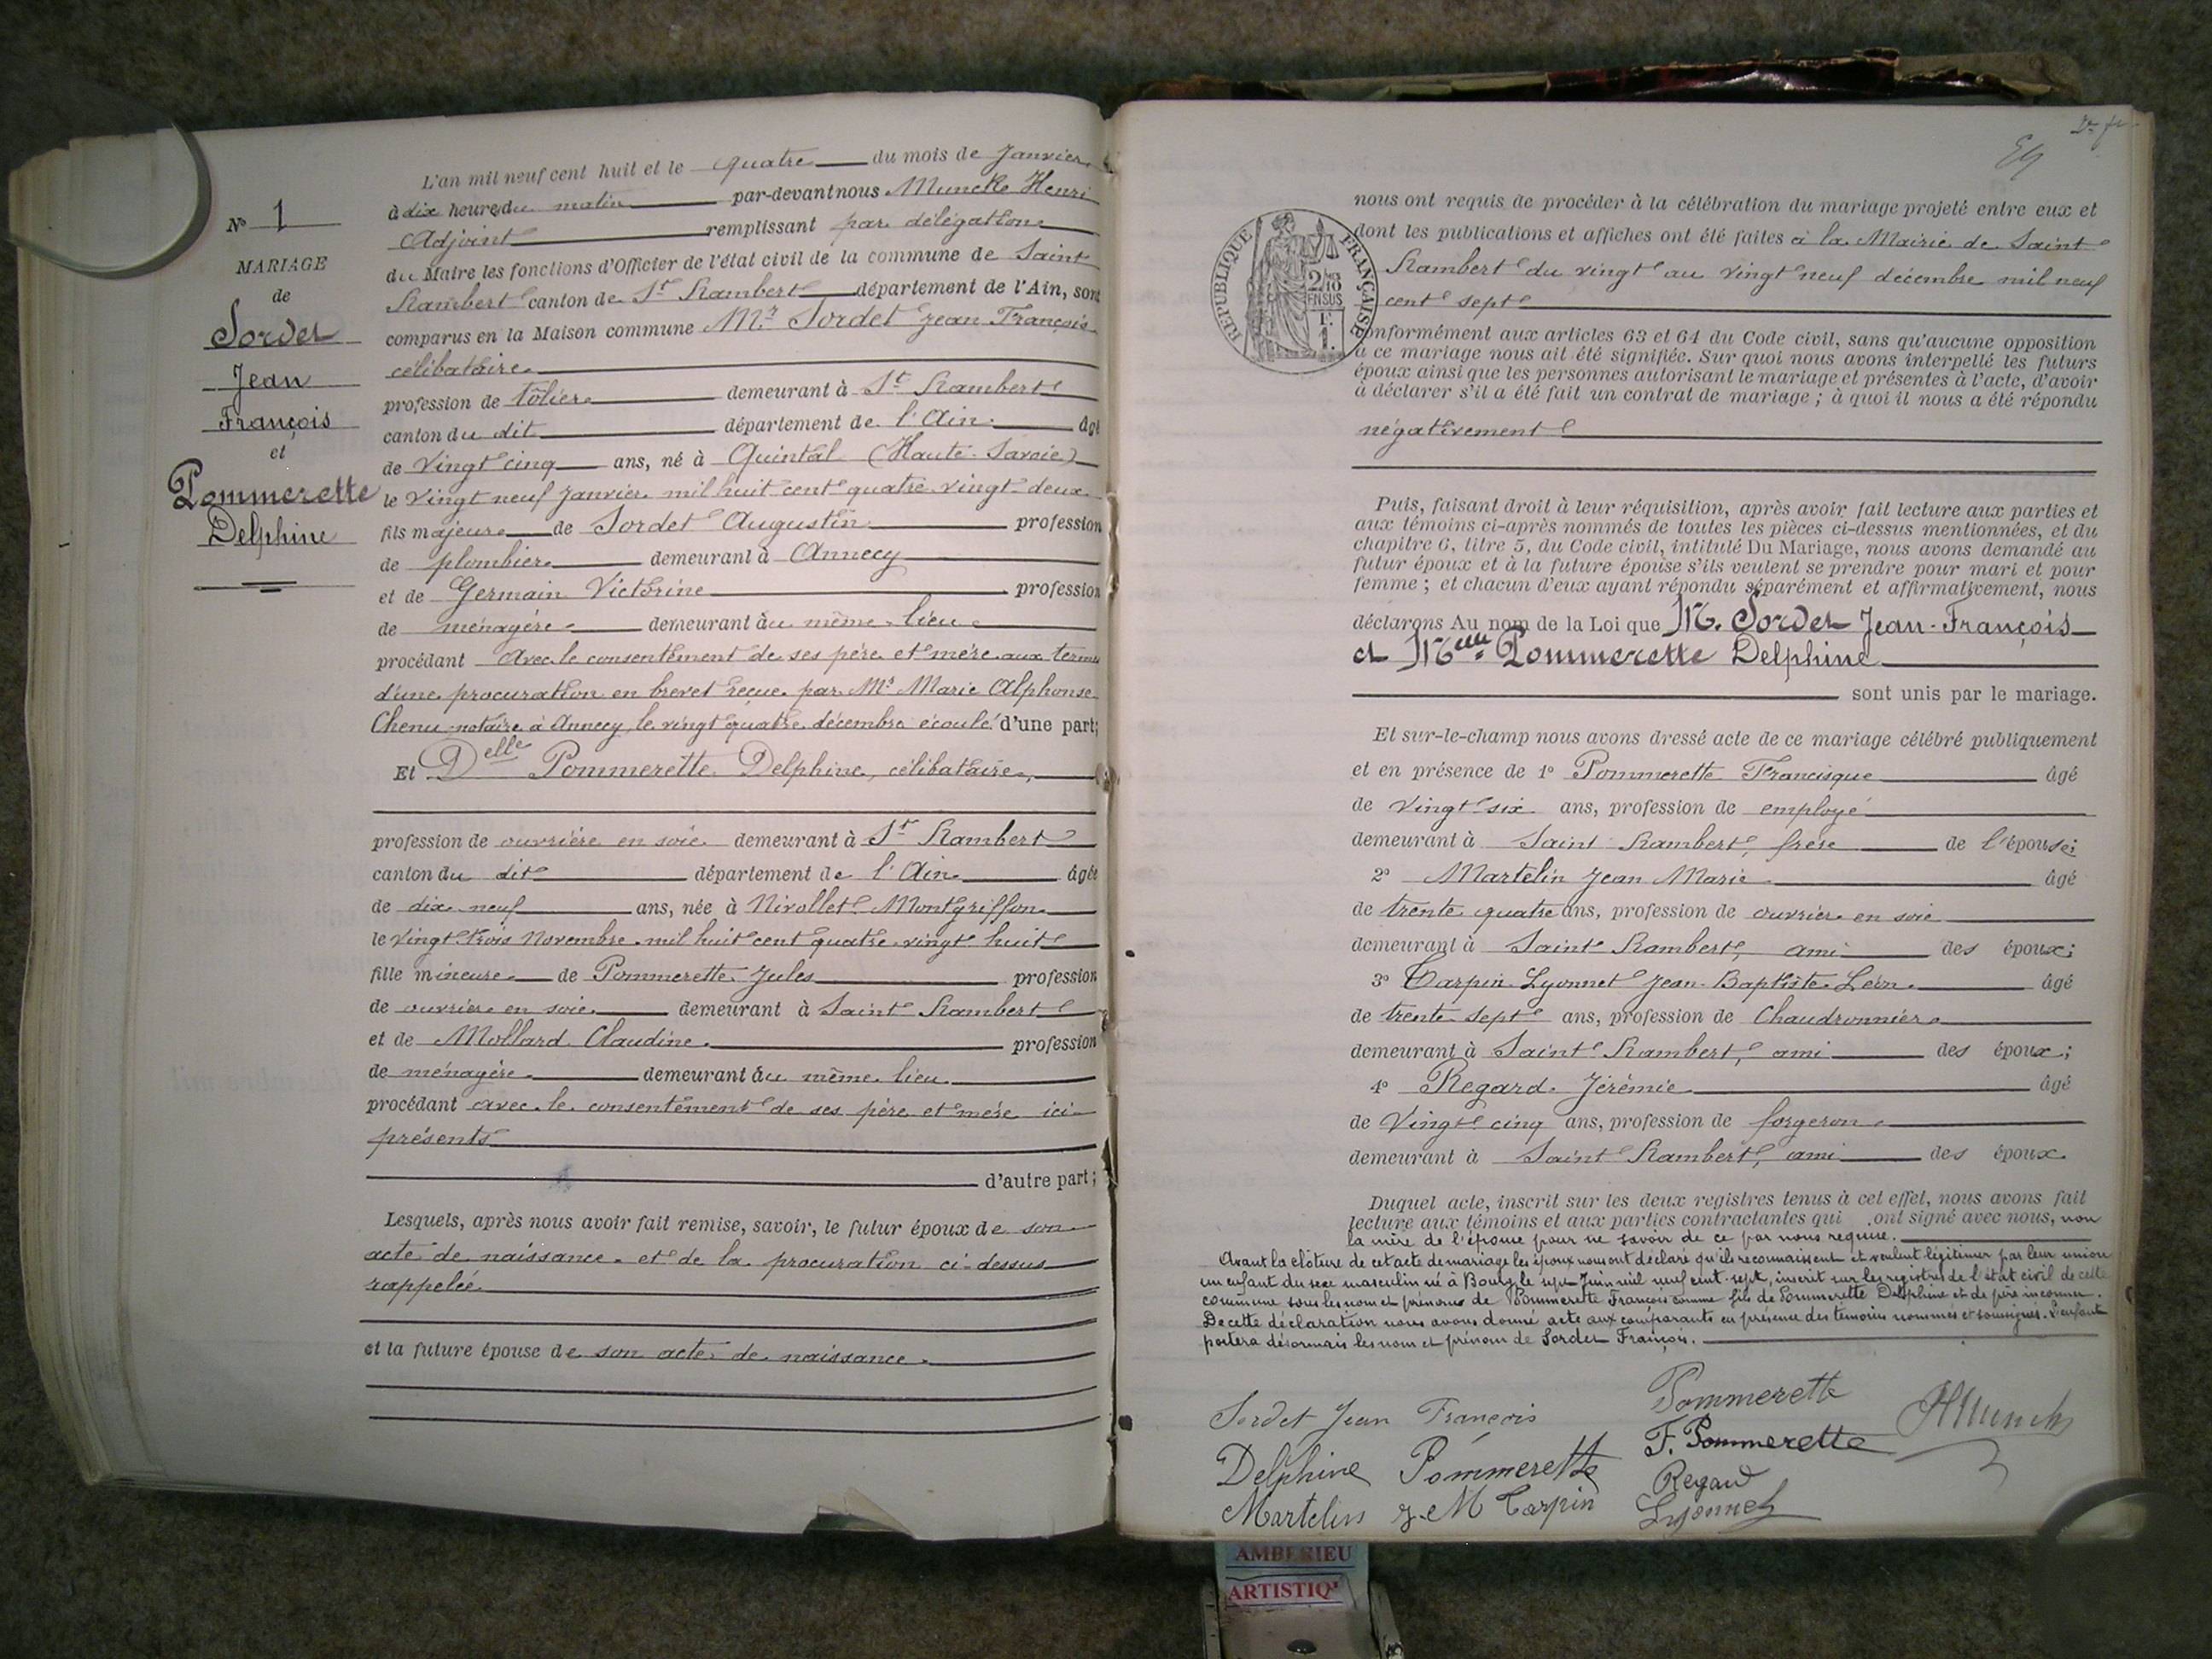 N° 1
MARIAGE
de
Sordet
Jean
François
et
Pommerette
Delphine
L'an mil neuf cent huit et le quatre du mois de Janvier
à dix heures du matin par-devant nous Muncke Henri
Adjoint remplissant par délégation
du Maire les fonctions d'Officier de l'état civil de la commune de Saint
Rambert canton de St Rambert département de l'Ain, sont
comparus en la Maison commune Mr Sordet Jean François
célibataire
profession de tôlier demeurant à St Rambert
canton du dit département de l'Ain âgé
de vingt cinq ans, né à Quintal (Haute-Savoie)
le vingt neuf Janvier mil huit cent quatre vingt-deux
fils majeur de Sordet Augustin profession
de plombier demeurant à Annecy
et de Germain Victorine profession
de ménagère demeurant au même lieu
procédant avec le consentement de ses père et mère aux termes
d'une procuration en brevet reçue par Me Marie Alphonse
Chenu, notaire à Annecy, le vingt quatre décembre écoulé d'une part;
Et Delle Pommerette Delphine, célibataire,
profession de ouvrière en soie demeurant à St Rambert
canton du dit département de l'Ain âgée
de dix-neuf ans, née à Nivollet-Montgriffon
le vingt trois Novembre mil huit cent quatre vingt huit
fille mineure de Pommerette Jules profession
de ouvrier en soie demeurant à Saint Rambert
et de Mollard Claudine profession
de ménagère demeurant au même lieu
procédant avec le consentement de ses père et mère ici
présents
d'autre part;
Lesquels, après nous avoir fait remise, savoir, le futur époux de son
acte de naissance et de la procuration ci-dessus
rappelée
et la future épouse de son acte de naissance.
nous ont requis de procéder à la célébration du mariage projeté entre eux et
dont les publications et affiches ont été faites à la Mairie de Saint
Rambert du vingt au vingt neuf décembre mil neuf
cent sept
RÉPUBLIQUE FRANÇAISE
EN SUS
1.
conformément aux articles 63 et 64 du Code civil, sans qu'aucune opposition
à ce mariage nous ait été signifiée. Sur quoi nous avons interpellé les futurs
époux ainsi que les personnes autorisant le mariage et présentes à l'acte, d'avoir
à déclarer s'il a été fait un contrat de mariage; à quoi il nous a été répondu
négativement
Puis, faisant droit à leur réquisition, après avoir fait lecture aux parties et
aux témoins ci-après nommés de toutes les pièces ci-dessus mentionnées, et du
chapitre 6, titre 5, du Code civil, intitulé Du Mariage, nous avons demandé au
futur époux et à la future épouse s'ils veulent se prendre pour mari et pour
femme; et chacun d'eux ayant répondu séparément et affirmativement, nous
déclarons Au nom de la Loi que M. Sordet Jean-François
et Melle Pommerette Delphine
sont unis par le mariage.
Et sur-le-champ nous avons dressé acte de ce mariage célébré publiquement
et en présence de 1° Pommerette Francisque âgé
de vingt six ans, profession de employé
demeurant à Saint Rambert, frère de l'épouse;
2° Martelin Jean Marie âgé
de trente quatre ans, profession de ouvrier en soie
demeurant à Saint Rambert, ami des époux;
3° Carpin-Lyonnet Jean-Baptiste Léon âgé
de trente sept ans, profession de Chaudronnier
demeurant à Saint Rambert, ami des époux;
4° Regard Jérémie âgé
de vingt cinq ans, profession de forgeron
demeurant à Saint Rambert, ami des époux
Duquel acte, inscrit sur les deux registres tenus à cet effet, nous avons fait
lecture aux témoins et aux parties contractantes qui ont signé avec nous, non
la mère de l'épouse pour ne savoir de ce par nous requise.
Avant la clôture de cet acte de mariage les époux nous ont déclaré qu'ils reconnaissent et veulent légitimer par leur union
un enfant du sexe masculin né à Bourg le sept Juin mil neuf cent-sept, inscrit sur les registres de l'état civil de cette
commune sous les nom et prénoms de Pommerette François comme fils de Pommerette Delphine et de père inconnu.
De cette déclaration nous avons donné acte aux comparants en présence des témoins nommés et soussignés. L'enfant
portera désormais les nom et prénom de Sordet François.
Sordet Jean François
Pommerette
HMuncke
Delphine Pommerette
F. Pommerette
Martelin J.M Carpin
Regard
Lyonnet
AMBERIEU
ARTISTIQ